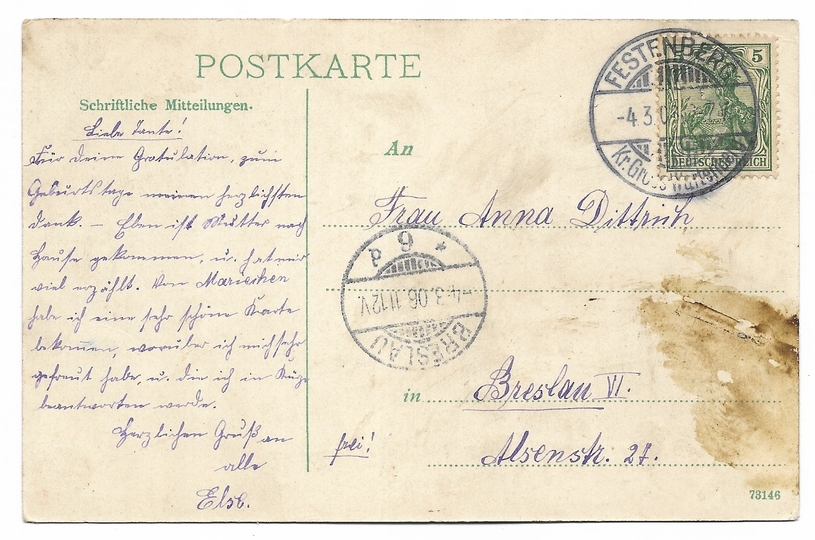 POSTKARTE
Schriftliche Mitteilungen.
Liebe Tante!
Für deine Gratulation, zum
Geburtstage meinen herzlichsten
Dank. – Eben ist Mutter nach
Hause gekommen, u. hat mir
viel erzählt. Von Mariechen
habe ich eine sehr schöne Karte
bekommen, worüber ich mich sehr
gefreut habe, u. die ich in Kürze
beantworten werde.
Herzlichen Gruß an
alle
Else.
FESTENBERG
-4.3.0
Kr. Gross Wartenberg
5
DEUTSCHES REICH
An
Frau Anna Dittrich
* 9 d
-4.3.06.11-12V.
BRESLAU
in Breslau VI.
frei!
Alsenstr. 27.
73146